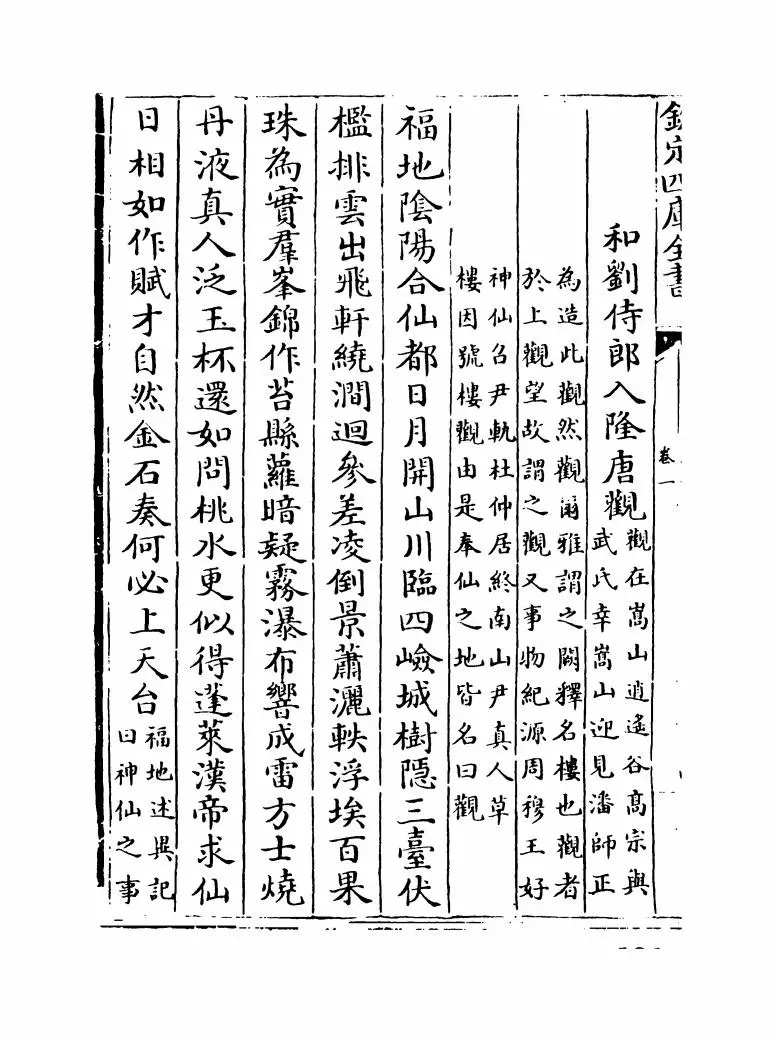 欽定四庫全書
卷一
和劉侍郎入隆唐觀觀在嵩山逍遙谷高宗與武氏幸嵩山迎見潘師正
為造此觀然觀爾雅謂之闕釋名樓也觀者於上觀望故謂之觀又事物紀源周穆王好
神仙召尹軌杜仲居終南山尹真人草樓因號樓觀由是奉仙之地皆名曰觀
福地陰陽合仙都日月開山川臨四嶮城樹隱三臺伏
檻排雲出飛軒繞澗迴參差凌倒景蕭灑軼浮埃百果
珠為實羣峯錦作苔縣蘿暗疑霧瀑布響成雷方士燒
丹液真人泛玉杯還如問桃水更似得蓬萊漢帝求仙
日相如作賦才自然金石奏何必上天台福地述異記曰神仙之事